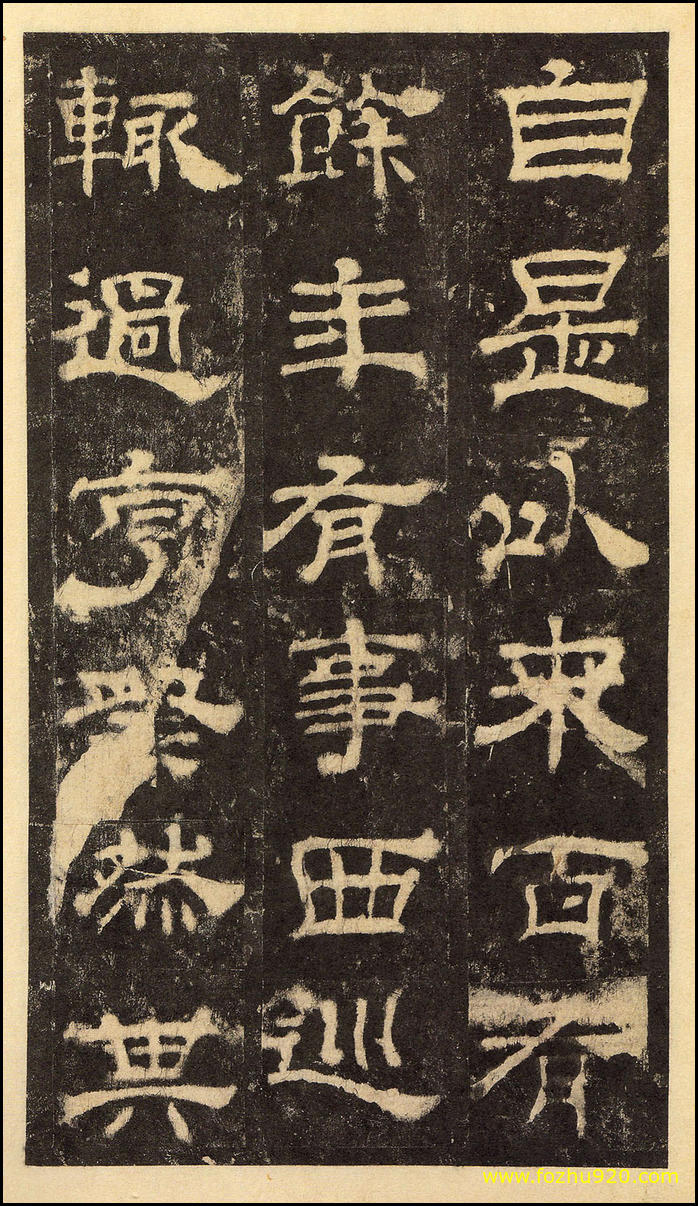 自是以來百有
餘年有事西巡
輒過亨祭然其
www.fozhu920.com